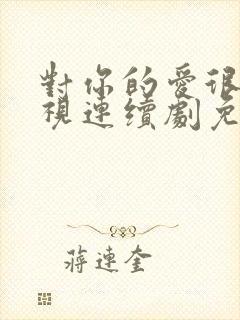 對你的愛很
視連續劇免
蔣連奎